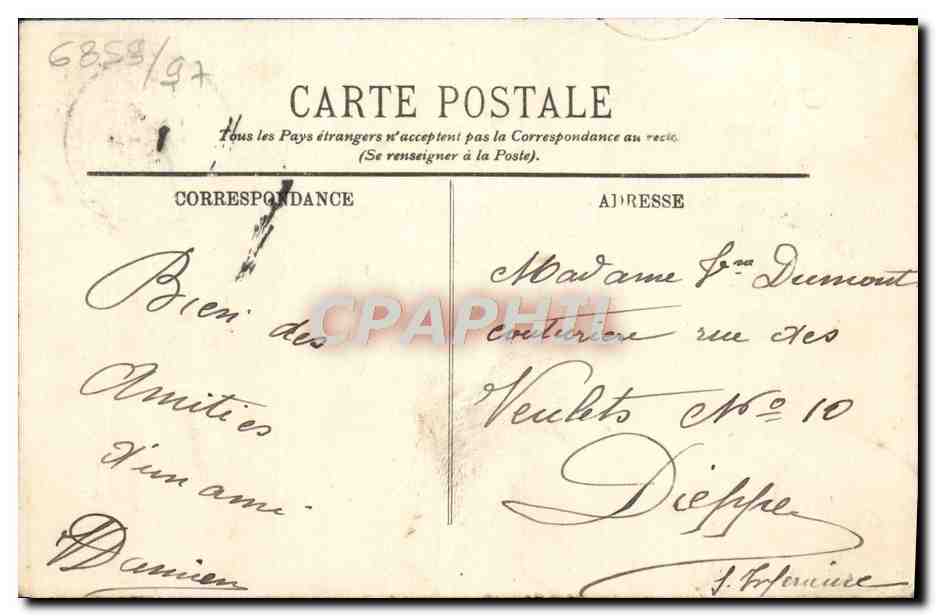 6858/97
CARTE POSTALE
Tous les Pays étrangers n'acceptent pas la Correspondance au recto.
(Se renseigner à la Poste).
CORRESPONDANCE
ADRESSE
Bien des
Amitiés
d'un ami
Damien
Madame Dumont
couturière rue des
N° 10
Dieppe
S. Inférieure
CPAPHIL